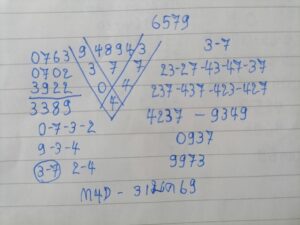 6579
0763
0702
3922
3389
0-7-3-2
9-3-4
3-7 2-4
9 48943
3 7 7
0 4
4
3-7
23-27-43-47-37
237-437-423-427
4237-9349
0937
9973
M4D-